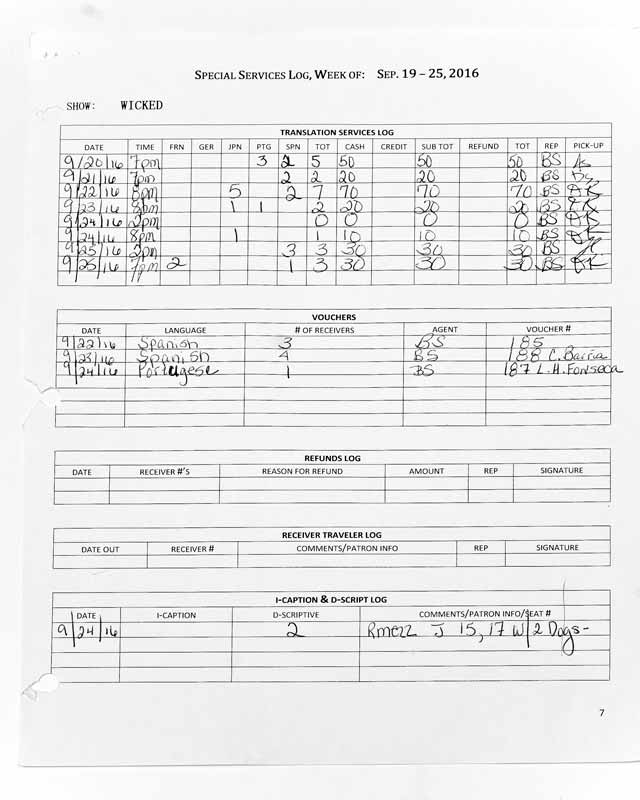 SPECIAL SERVICES LOG, WEEK OF: SEP. 19 – 25, 2016
SHOW: WICKED
TRANSLATION SERVICES LOG
DATE TIME FRN GER JPN PTG SPN TOT CASH CREDIT SUB TOT REFUND TOT REP PICK-UP
9/20/16 7pm 3 2 5 50 50 50 BS
9/21/16 7pm 2 2 20 20 20 BS
9/22/16 8pm 5 2 7 70 70 70 BS
9/23/16 8pm 1 1 2 20 20 20 BS
9/24/16 2pm 0 0 0 0 BS
9/24/16 8pm 1 1 10 10 10 BS
9/25/16 2pm 3 3 30 30 30 BS
9/25/16 7pm 2 1 3 30 30 30 BS
VOUCHERS
DATE LANGUAGE # OF RECEIVERS AGENT VOUCHER #
9/22/16 Spanish 3 BS 185
9/23/16 Spanish 4 BS 188 C. Barria
9/24/16 Portugese 1 BS 187 L.H. Fonseca
REFUNDS LOG
DATE RECEIVER #'S REASON FOR REFUND AMOUNT REP SIGNATURE
RECEIVER TRAVELER LOG
DATE OUT RECEIVER # COMMENTS/PATRON INFO REP SIGNATURE
I-CAPTION & D-SCRIPT LOG
DATE I-CAPTION D-SCRIPTIVE COMMENTS/PATRON INFO/SEAT #
9/24/16 2 Rmezz J 15, 17 W/ 2 Dogs-
7